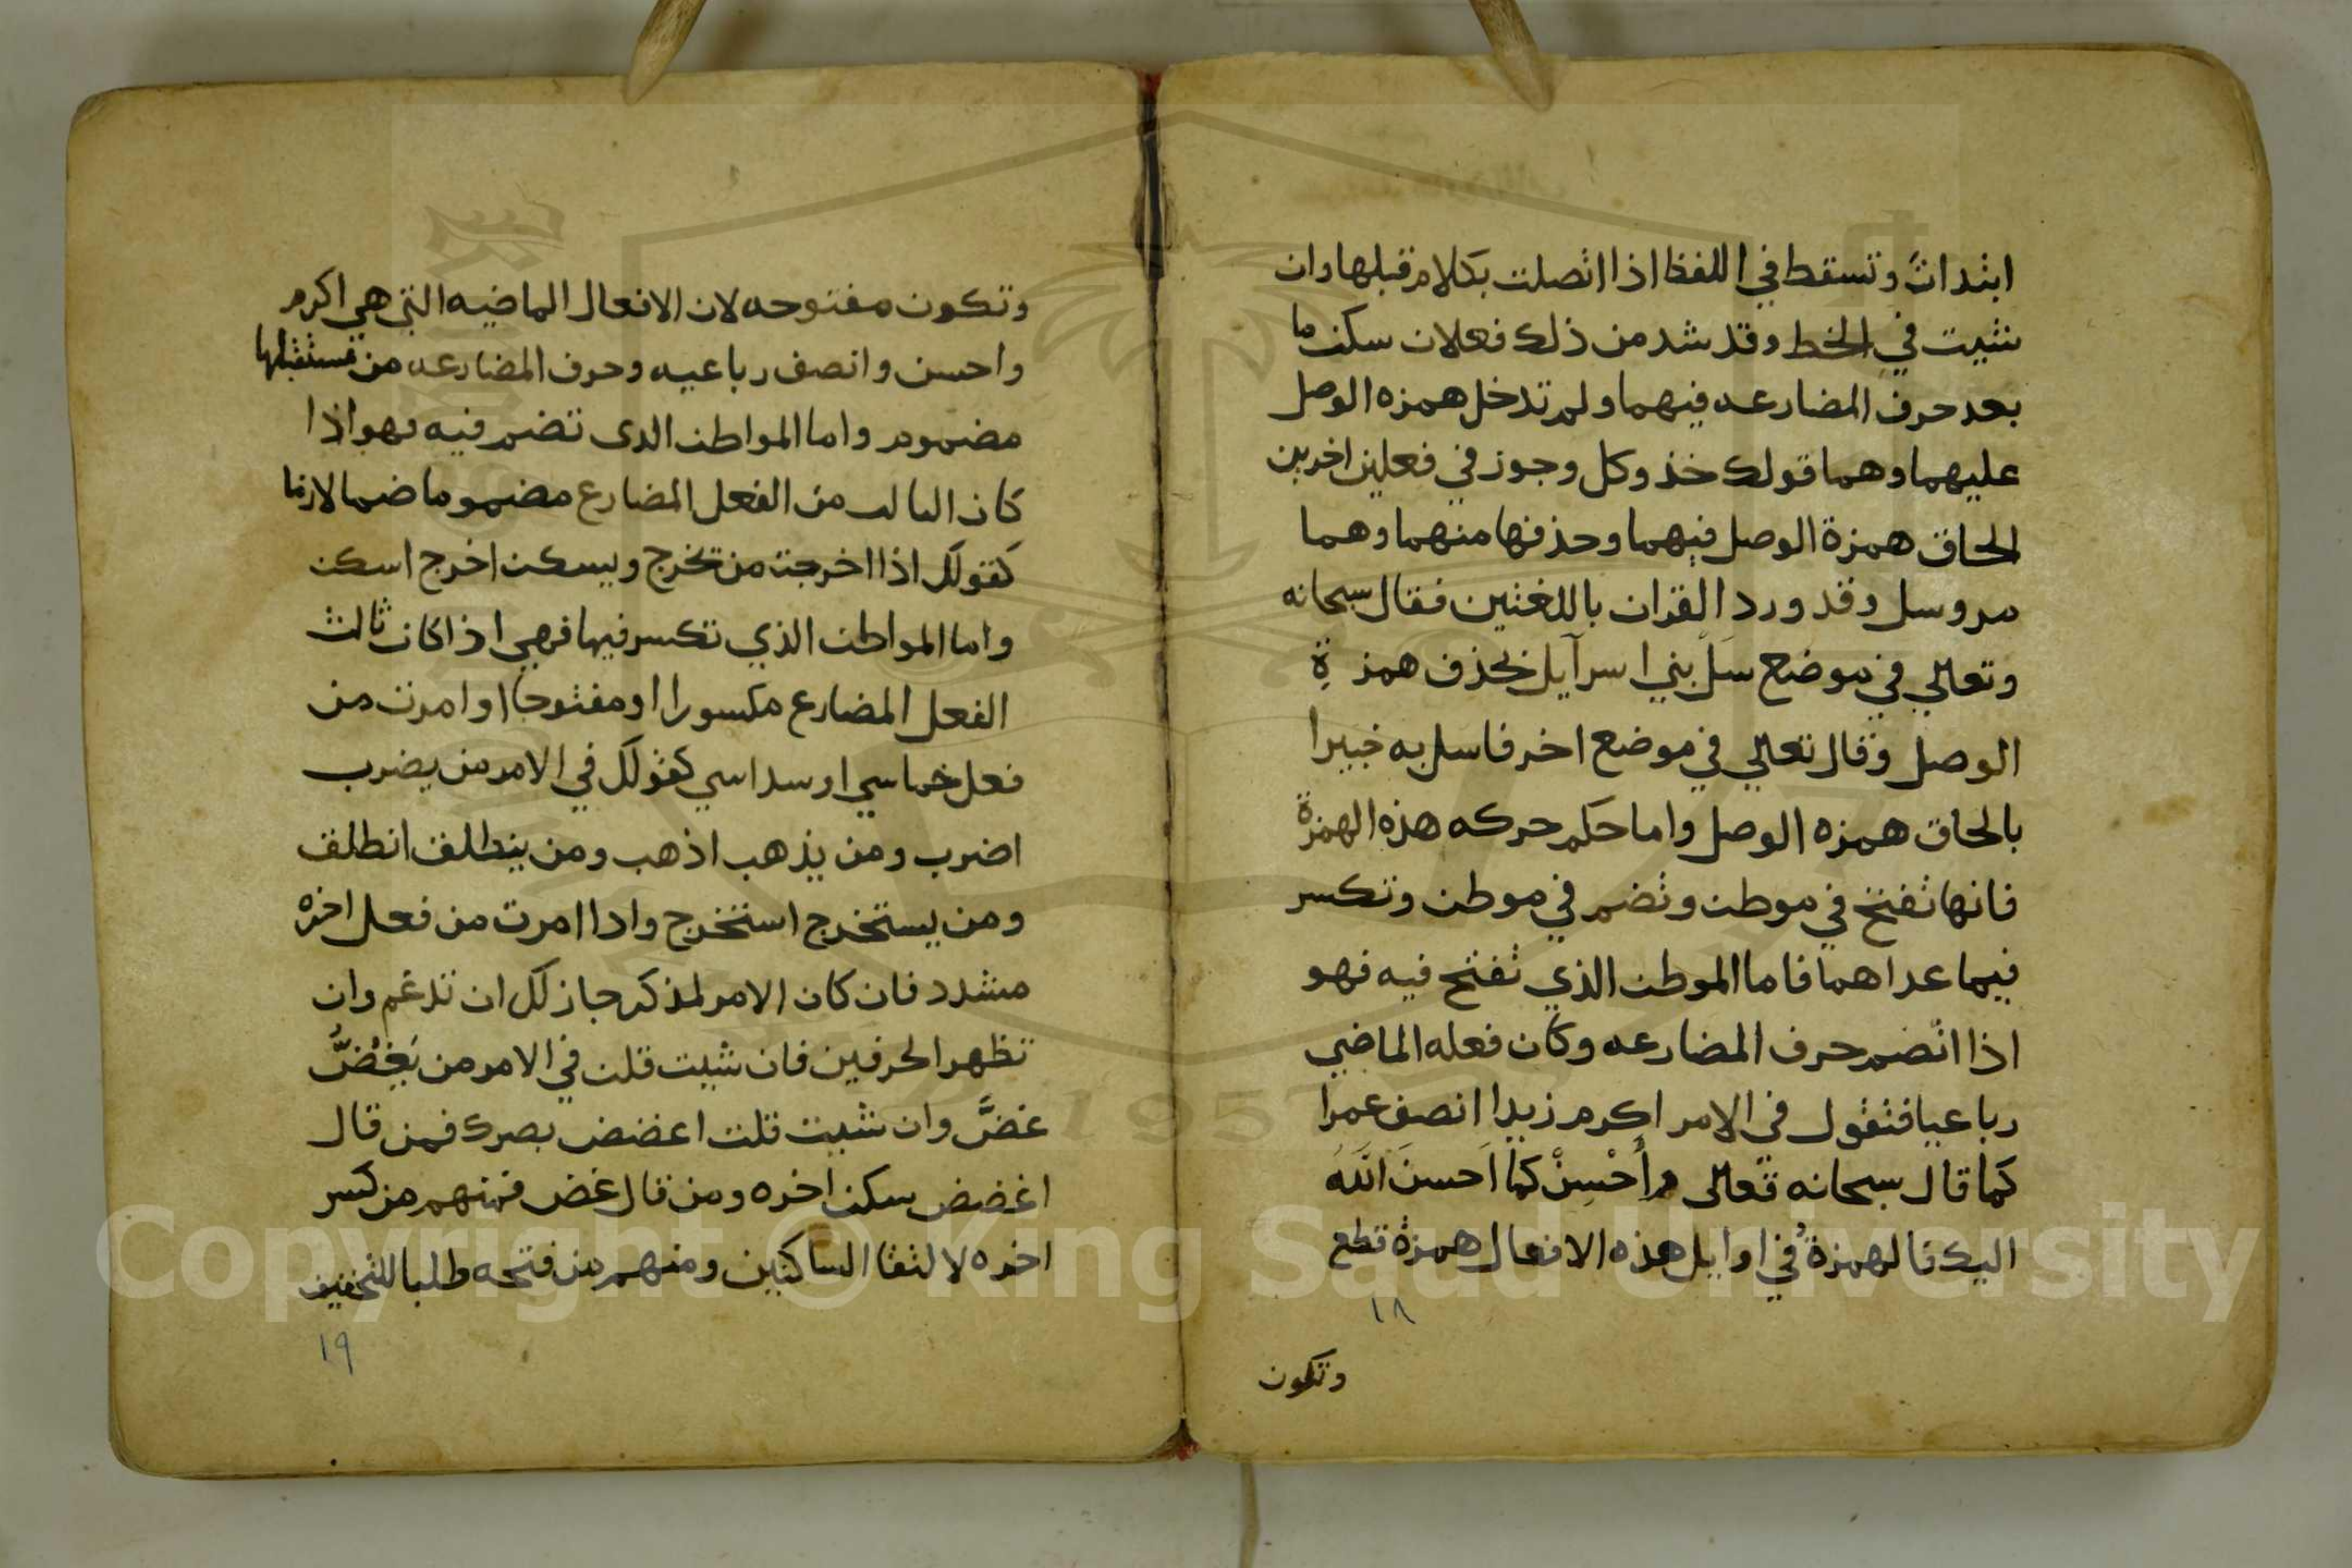 ابتدات وتسقط في اللفظ اذا اتصلت بكلام قبلها وان
تثبت في الخط وقد شد من ذلك فعلان سكن ما
بعد حرف المضارعه فيهما ولم تدخل همزه الوصل
عليهما وهما قولك خذ وكل وجوز في فعلين اخرين
الحاق همزة الوصل فيهما وحذفها منهما وهما
مر وسل وقد ورد القران باللغتين فقال سبحانه
وتعالي في موضع سَلْ بني اسرآيل بحذف همزةِ
الوصل وقال تعالي في موضع اخر فاسل به خبيرا
بالحاق همزه الوصل واما حكم حركه هذه الهمزة
فانها تفتح في موطن وتضم في موطن وتكسر
فيما عداهما فاما الموطن الذي تفتح فيه فهو
اذا انضم حرف المضارعه وكان فعله الماضي
رباعيا فتقول في الامر اكرم زيدا انصف عمرا
كما قال سبحانه تعالى وأَحْسِنْ كما اَحسنَ اللَّهَ
اليك فالهمزةُ في اوايل هذه الافعال همزة قطع
١٨
وتكون
وتكون مفتوحه لان الافعال الماضيه التي هي اكرم
واحسن وانصف رباعيه وحرف المضارعه من مستقبلها
مضموم واما المواطن الدى تضم فيه فهو اذا
كان الىالث من الفعل المضارع مضموما ضما لازما
كقولك اذا اخرجت من تخرج ويسكن اخرج اسكن
واما المواطن الذي تكسر فيها فهي اذا كان ثالث
الفعل المضارع مكسورا او مفتوحا او امرت من
فعل خماسي او سداسي كقولك في الامر من يضرب
اضرب ومن يذهب اذهب ومن ينطلق انطلق
ومن يستخرج استخرج وادا امرت من فعل اخره
مشدد فان كان الامر لمذكر جاز لك ان تدغم وان
تظهر الحرفين فان شيت قلت في الامر من يَغُضُّ
غضَّ وان شيت قلت اغضض بصرك فمن قال
اغضض سكن اخره ومن قال غض فمنهم من كسر
اخره لالتقا الساكنين ومنهم من فتحه طلبا للتخفيف
١٩
Copyright © King Saud University
1957